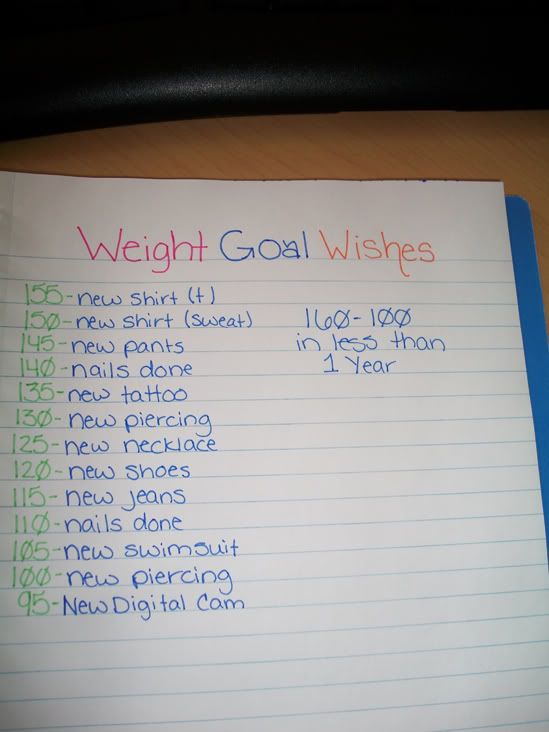 Weight Goal Wishes
155-new shirt (t)
150-new shirt (sweat)
145-new pants
140-nails done
135-new tattoo
130-new piercing
125-new necklace
120-new shoes
115-new jeans
110-nails done
105-new swimsuit
100-new piercing
95-New Digital Cam
160-100
in less than
1 Year